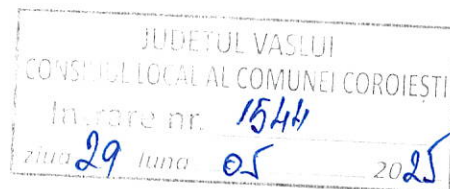 JUDEȚUL VASLUI
CONSILIUL LOCAL AL COMUNEI COROIEȘTI
Intrare nr. 1544
ziua 29 luna 05 2025